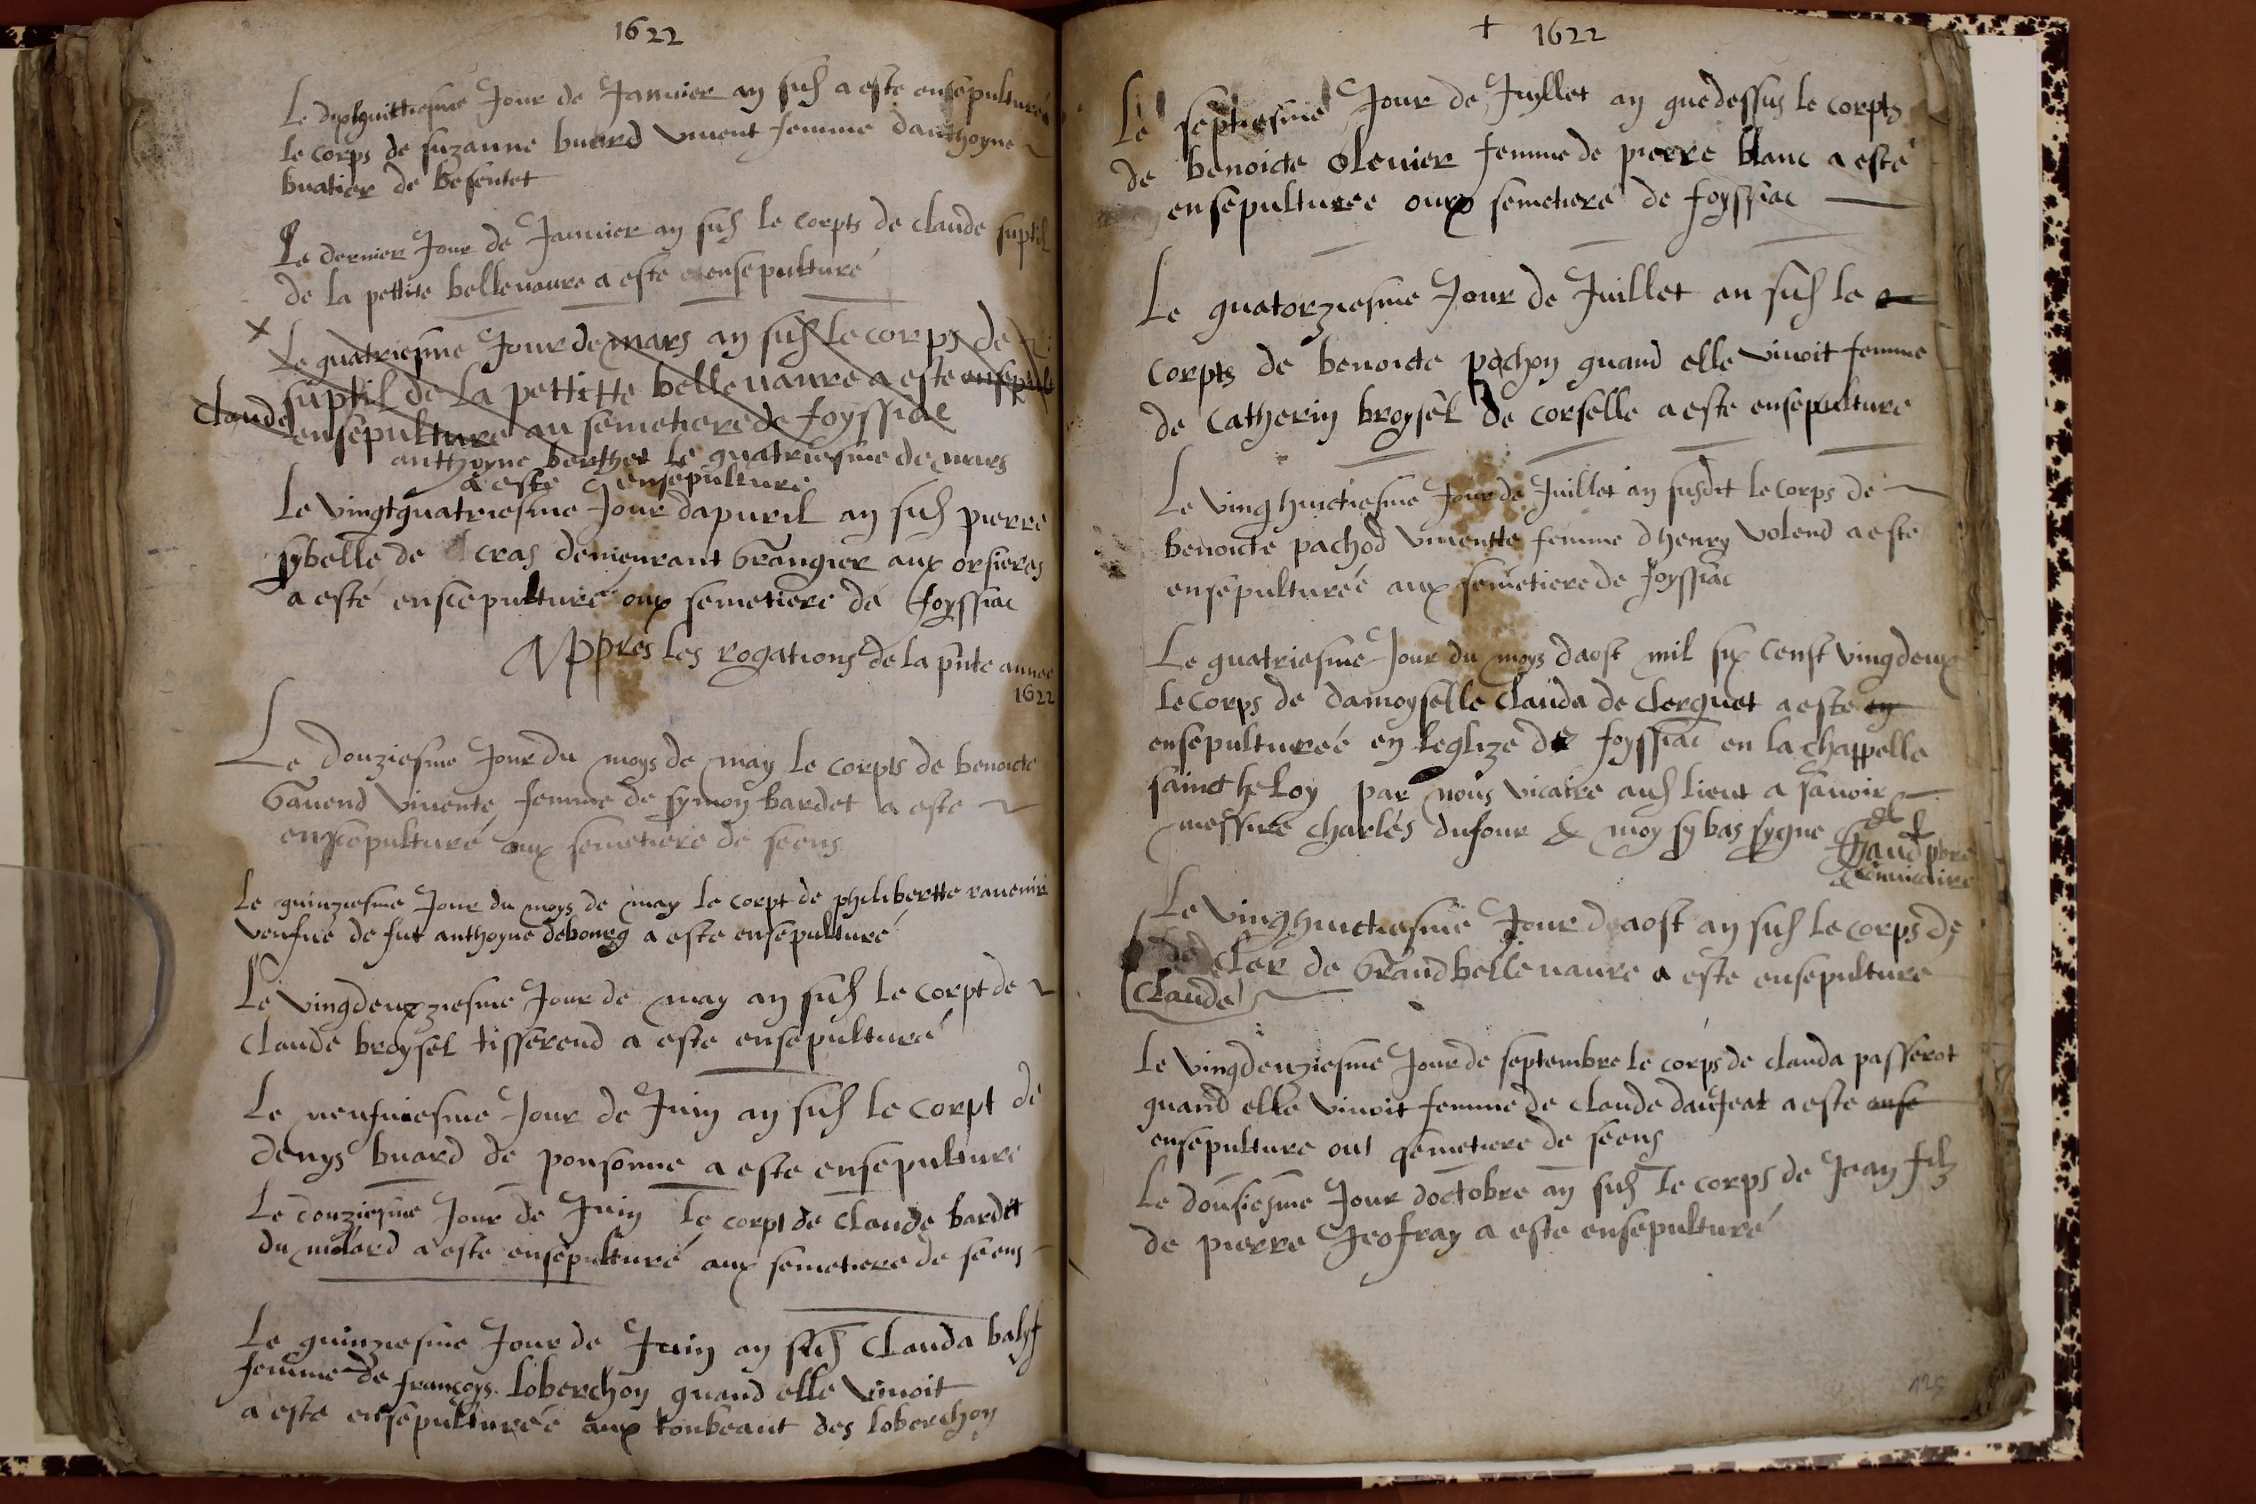 1622
Le dixhuictiesme Jour de Janvier an susd a este ensepulturée
le corps de suzanne buard vivent femme danthoyne
buatier de besentet
Le dernier Jour de Janvier an susd le corpts de claude suptil
de la pettite bellevavre a este ensepulturé
x Le quatriesme Jour de mars an susd le corps de
claude suptil de la pettitte bellevavre a este ensepult
ensepulture au semetiere de foyssiac
anthoyne berthet le quatriesme de mars
a este ensepulture
Le vingtquatriesme Jour dapvril an susd pierre
sybelle de cras demeurant Grangier aux orsieres
a esté enscepulturé oux semetiere de foyssiac
Appres les rogations de la pnte annee
1622
Le douziesme Jour du moys de may le corpts de benoicte
Gavend vivente femme de symon bardet a este
enscepulturé aux semetiere de seens
Le quinziesme Jour du moys de may le corpt de philibertte
veufve de fut anthoyne debourg a este ensepulturé
Le vingdeuxziesme Jour de may an susd le corpt de
claude broysel tisserend a este ensepulturé
Le neufviesme Jour de Juin an susd le corpt de
denys buard de ponsonne a este ensepulture
Le douziesme Jour de Juin le corpt de claude bardet
du molard a este ensepulturé aux semetiere de seens
Le quinziesme Jour de Juin an susd clauda balyf
femme de françoys loberchon quand elle vivoit
a este ensepulturéé aux tonbeaut des loberchon
+ 1622
Le septiesme Jour de Juyllet an quedessus le corpts
de benoicte olenier femme de pierre blanc a esté
ensepulturee oux semetiere de foyssiac
Le quatorziesme Jour de Juillet an susd le
corpts de benoicte pochon quand elle vivoit femme
de Catherin broysel de corselle a este ensepulture
Le vinghuictiesme Jour de Juillet an susdit le corps de
benoicte pachod viventte femme dhenry volend a este
ensepulturéé aux semetiere de foyssiac
Le quatriesme Jour du moys daost mil six censt vingdeux
le corps de damoyselle clauda de clerguet a este en
ensepulturéé en leglize de foyssiac en la chappelle
sainct heloy par nous vicaire aud lieut a savoir
messire charles dufour & moy sy bas sygne
pbre
& vicaire
Le vinghuictiesme Jour daost an susd le corps de
claude cler de Grand bellevavre a este ensepulture
Le vingdeuziesme Jour de septembre le corps de clauda passerot
quand elle vivoit femme de claude daujeat a este ense
ensepulture out semetiere de seens
Le dousiesme Jour doctobre an susd le corps de Jean filz
de pierre Jeofray a este ensepulturé
125